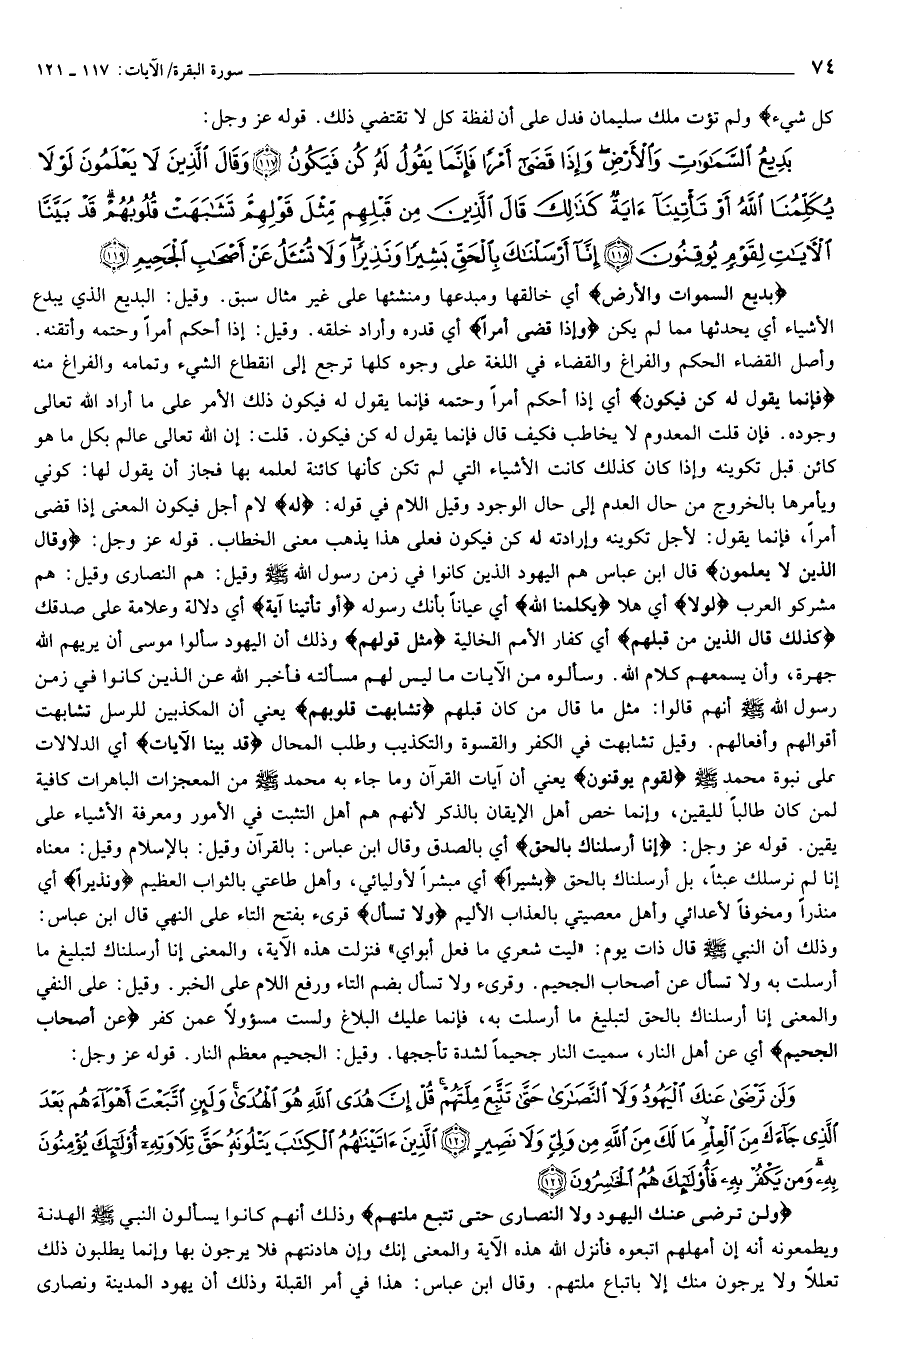 ٧٤ ــــــ سورة البقرة/ الآيات: ١١٧ ـ ١٢١
كل شيء﴾ ولم تؤت ملك سليمان فدل على أن لفظة كل لا تقتضي ذلك. قوله عز وجل:
بَدِيعُ ٱلسَّمَٰوَٰتِ وَٱلْأَرْضِۖ وَإِذَا قَضَىٰٓ أَمْرًا فَإِنَّمَا يَقُولُ لَهُۥ كُن فَيَكُونُ ﴿١١٧﴾ وَقَالَ ٱلَّذِينَ لَا يَعْلَمُونَ لَوْلَا
يُكَلِّمُنَا ٱللَّهُ أَوْ تَأْتِينَآ ءَايَةٌۗ كَذَٰلِكَ قَالَ ٱلَّذِينَ مِن قَبْلِهِم مِّثْلَ قَوْلِهِمْۘ تَشَٰبَهَتْ قُلُوبُهُمْۗ قَدْ بَيَّنَّا
ٱلْآيَٰتِ لِقَوْمٍ يُوقِنُونَ ﴿١١٨﴾ إِنَّآ أَرْسَلْنَٰكَ بِٱلْحَقِّ بَشِيرًا وَنَذِيرًاۖ وَلَا تُسْـَٔلُ عَنْ أَصْحَٰبِ ٱلْجَحِيمِ ﴿١١٩﴾
﴿بديع السموات والأرض﴾ أي خالقها ومبدعها ومنشئها على غير مثال سبق. وقيل: البديع الذي يبدع
الأشياء أي يحدثها مما لم يكن ﴿وإذا قضى أمراً﴾ أي قدره وأراد خلقه. وقيل: إذا أحكم أمراً وحتمه وأتقنه.
وأصل القضاء الحكم والفراغ والقضاء في اللغة على وجوه كلها ترجع إلى انقطاع الشيء وتمامه والفراغ منه
﴿فإنما يقول له كن فيكون﴾ أي إذا أحكم أمراً وحتمه فإنما يقول له فيكون ذلك الأمر على ما أراد الله تعالى
وجوده. فإن قلت المعدوم لا يخاطب فكيف قال فإنما يقول له كن فيكون. قلت: إن الله تعالى عالم بكل ما هو
كائن قبل تكوينه وإذا كان كذلك كانت الأشياء التي لم تكن كأنها كائنة لعلمه بها فجاز أن يقول لها: كوني
ويأمرها بالخروج من حال العدم إلى حال الوجود وقيل اللام في قوله: ﴿له﴾ لام أجل فيكون المعنى إذا قضى
أمراً، فإنما يقول: لأجل تكوينه وإرادته له كن فيكون فعلى هذا يذهب معنى الخطاب. قوله عز وجل: ﴿وقال
الذين لا يعلمون﴾ قال ابن عباس هم اليهود الذين كانوا في زمن رسول الله ﷺ وقيل: هم النصارى وقيل: هم
مشركو العرب ﴿لولا﴾ أي هلا ﴿يكلمنا الله﴾ أي عياناً بأنك رسوله ﴿أو تأتينا آية﴾ أي دلالة وعلامة على صدقك
﴿كذلك قال الذين من قبلهم﴾ أي كفار الأمم الخالية ﴿مثل قولهم﴾ وذلك أن اليهود سألوا موسى أن يريهم الله
جهرة، وأن يسمعهم كلام الله. وسألوه من الآيات ما ليس لهم مسألته فأخبر الله عن الذين كانوا في زمن
رسول الله ﷺ أنهم قالوا: مثل ما قال من كان قبلهم ﴿تشابهت قلوبهم﴾ يعني أن المكذبين للرسل تشابهت
أقوالهم وأفعالهم. وقيل تشابهت في الكفر والقسوة والتكذيب وطلب المحال ﴿قد بينا الآيات﴾ أي الدلالات
على نبوة محمد ﷺ ﴿لقوم يوقنون﴾ يعني أن آيات القرآن وما جاء به محمد ﷺ من المعجزات الباهرات كافية
لمن كان طالباً لليقين، وإنما خص أهل الإيقان بالذكر لأنهم هم أهل التثبت في الأمور ومعرفة الأشياء على
يقين. قوله عز وجل: ﴿إنا أرسلناك بالحق﴾ أي بالصدق وقال ابن عباس: بالقرآن وقيل: بالإسلام وقيل: معناه
إنا لم نرسلك عبثاً، بل أرسلناك بالحق ﴿بشيراً﴾ أي مبشراً لأوليائي، وأهل طاعتي بالثواب العظيم ﴿ونذيراً﴾ أي
منذراً ومخوفاً لأعدائي وأهل معصيتي بالعذاب الأليم ﴿ولا تسأل﴾ قرىء بفتح التاء على النهي قال ابن عباس:
وذلك أن النبي ﷺ قال ذات يوم: «ليت شعري ما فعل أبواي» فنزلت هذه الآية، والمعنى إنا أرسلناك لتبليغ ما
أرسلت به ولا تسأل عن أصحاب الجحيم. وقرىء ولا تسأل بضم التاء ورفع اللام على الخبر. وقيل: على النفي
والمعنى إنا أرسلناك بالحق لتبليغ ما أرسلت به، فإنما عليك البلاغ ولست مسؤولاً عمن كفر ﴿عن أصحاب
الجحيم﴾ أي عن أهل النار، سميت النار جحيماً لشدة تأججها. وقيل: الجحيم معظم النار. قوله عز وجل:
وَلَن تَرْضَىٰ عَنكَ ٱلْيَهُودُ وَلَا ٱلنَّصَٰرَىٰ حَتَّىٰ تَتَّبِعَ مِلَّتَهُمْۗ قُلْ إِنَّ هُدَى ٱللَّهِ هُوَ ٱلْهُدَىٰۗ وَلَئِنِ ٱتَّبَعْتَ أَهْوَآءَهُم بَعْدَ
ٱلَّذِى جَآءَكَ مِنَ ٱلْعِلْمِۙ مَا لَكَ مِنَ ٱللَّهِ مِن وَلِىٍّ وَلَا نَصِيرٍ ﴿١٢٠﴾ ٱلَّذِينَ ءَاتَيْنَٰهُمُ ٱلْكِتَٰبَ يَتْلُونَهُۥ حَقَّ تِلَاوَتِهِۦٓ أُو۟لَٰٓئِكَ يُؤْمِنُونَ
بِهِۦۗ وَمَن يَكْفُرْ بِهِۦ فَأُو۟لَٰٓئِكَ هُمُ ٱلْخَٰسِرُونَ ﴿١٢١﴾
﴿ولن ترضى عنك اليهود ولا النصارى حتى تتبع ملتهم﴾ وذلك أنهم كانوا يسألون النبي ﷺ الهدنة
ويطمعونه أنه إن أمهلهم اتبعوه فأنزل الله هذه الآية والمعنى إنك وإن هادنتهم فلا يرجون بها وإنما يطلبون ذلك
تعللاً ولا يرجون منك إلا باتباع ملتهم. وقال ابن عباس: هذا في أمر القبلة وذلك أن يهود المدينة ونصارى